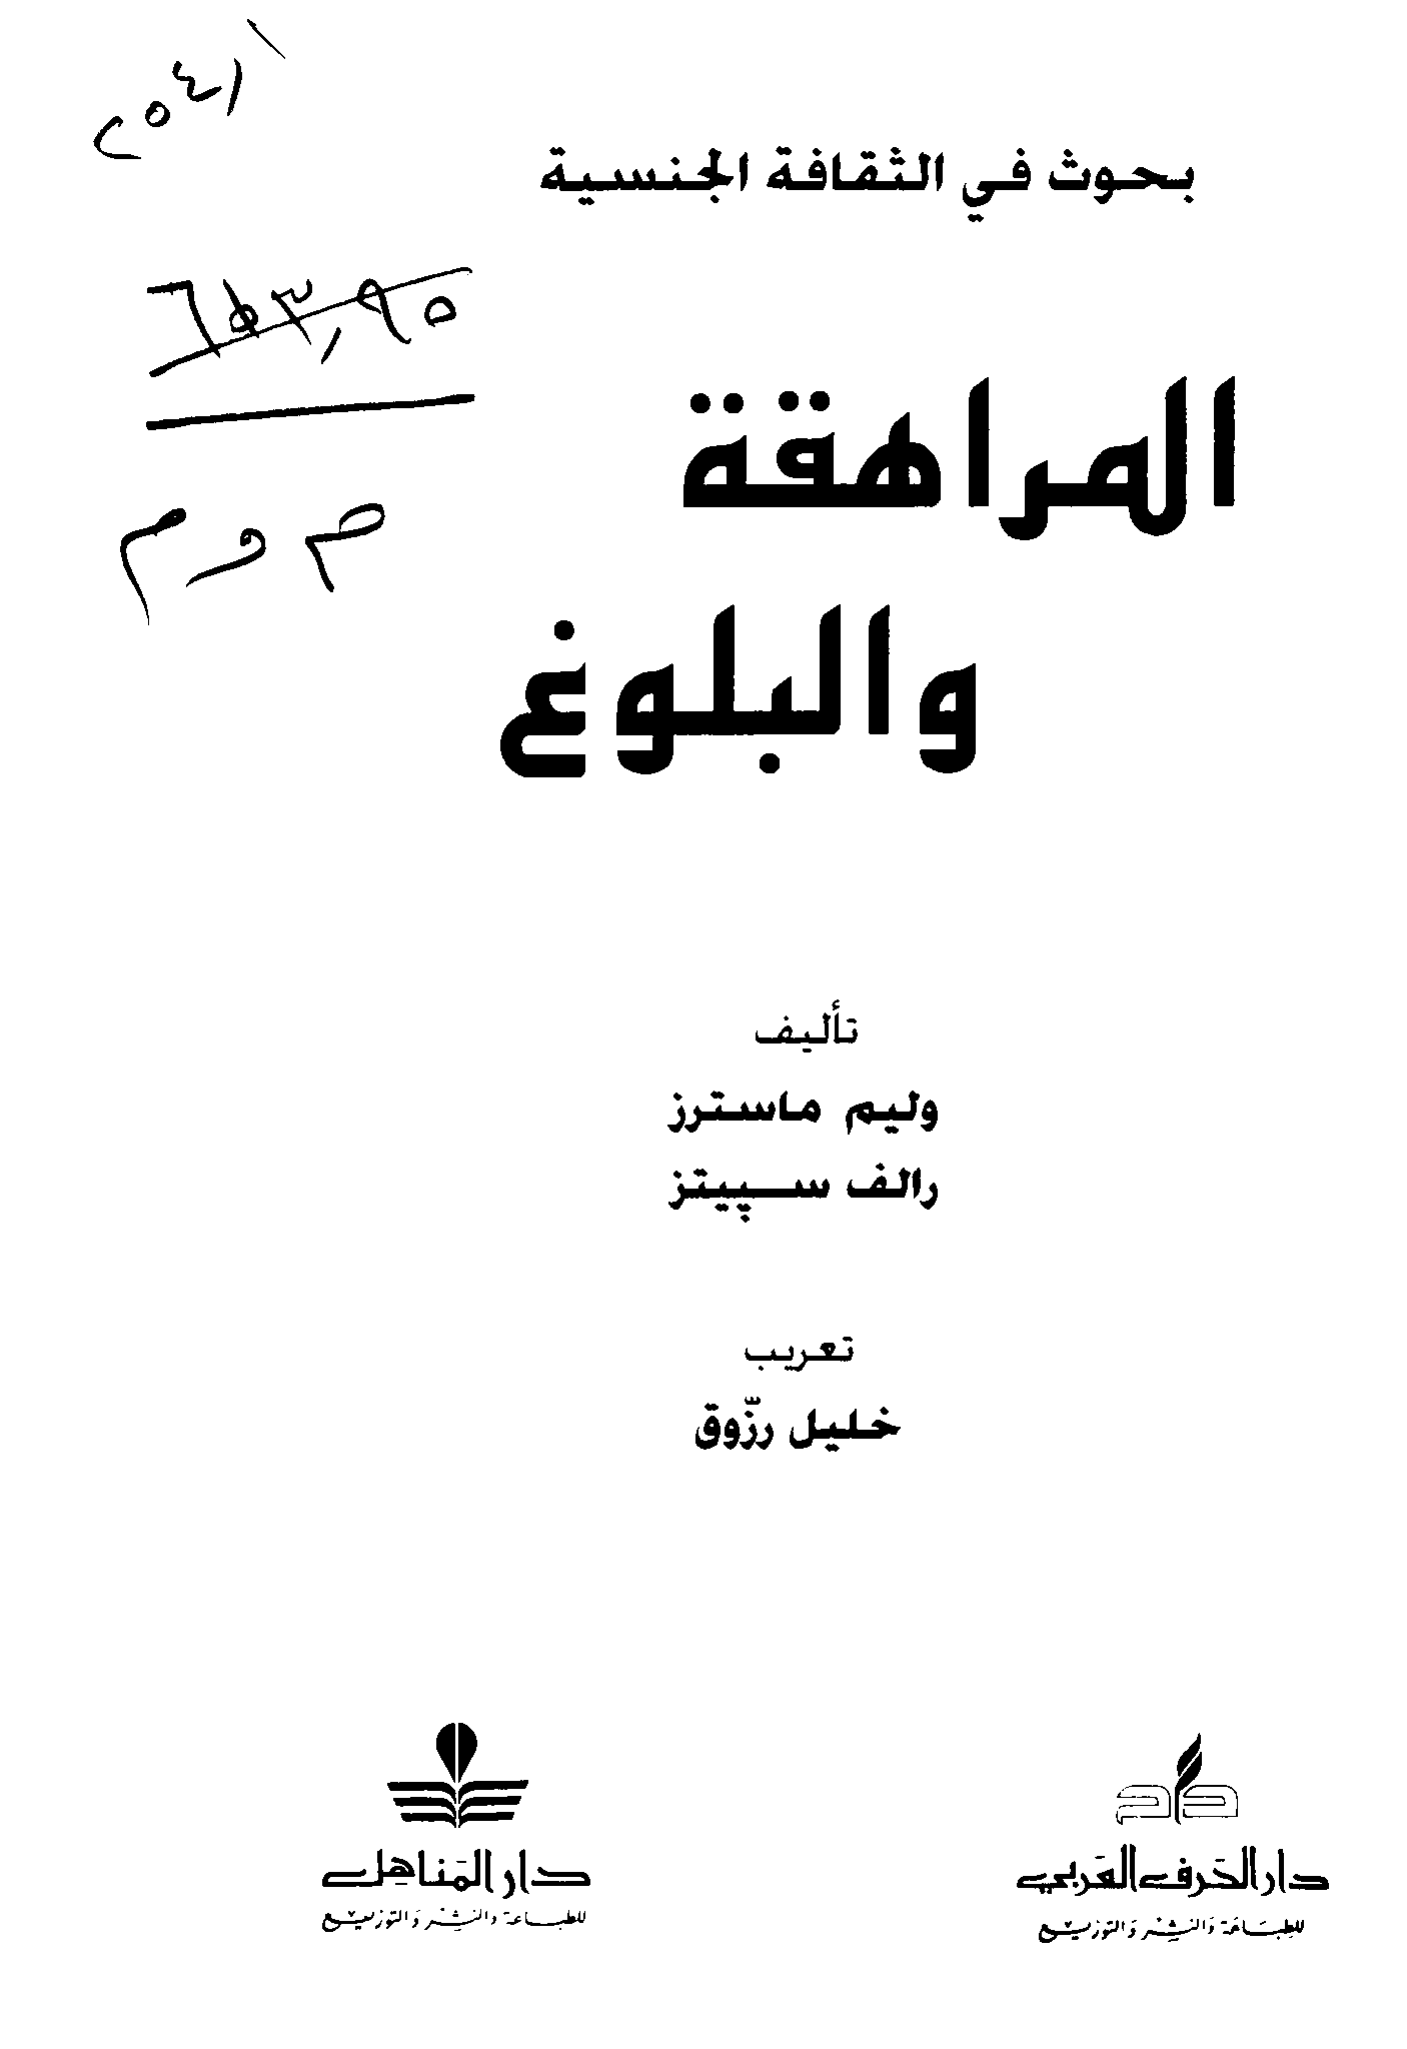 بحوث في الثقافة الجنسية
٦١٣,٩٥
المراهقة
م و م
والبلوغ
تأليف
وليم ماسترز
رالف سپيتز
تعريب
خليل رزّوق
دار المناهل
للطباعة والنشر والتوزيع
دار الحرف العربي
للطباعة والنشر والتوزيع